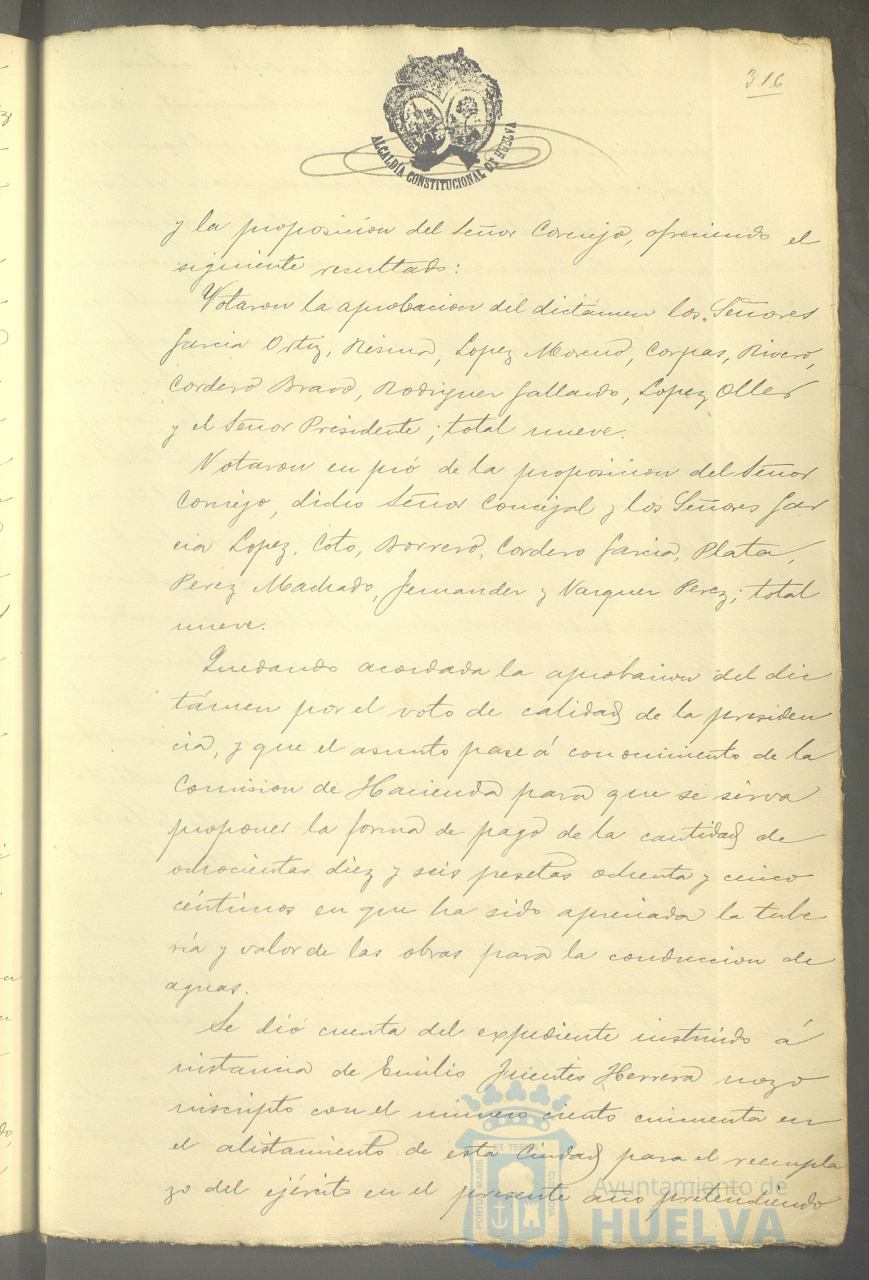 316
ALCALDÍA CONSTITUCIONAL DE HUELVA
y la proposicion del Señor Cornejo, ofreciendo el
siguiente resultado:
Votaron la aprobacion del dictámen los Señores
Garcia Ortiz, Resma, Lopez Moreno, Corpas, Rivero,
Cordero Bravo, Rodriguez Gallardo, Lopez Oller
y el Señor Presidente; total nueve.
Votaron en pró de la proposicion del Señor
Cornejo, dicho Señor Concejal y los Señores Gar
cia Lopez, Coto, Borrero, Cordero Garcia, Plata,
Perez Machado, Fernandez y Vazquez Perez; total
nueve.
Quedando acordada la aprobacion del dic
támen por el voto de calidad de la presiden
cia, y que el asunto pase á conocimiento de la
Comision de Hacienda para que se sirva
proponer la forma de pago de la cantidad de
ochocientas diez y seis pesetas ochenta y cinco
céntimos en que ha sido apreciada la tube
ría y valor de las obras para la conduccion de
aguas.
Se dió cuenta del expediente instruido á
instancia de Emilio Fuentes Herrera mozo
inscripto con el número ciento cincuenta en
el alistamiento de esta Ciudad para el reempla
zo del ejército en el presente año pretendiendo
PORTUS MARIS ET TERRAE CUSTODIA
Ayuntamiento de
HUELVA